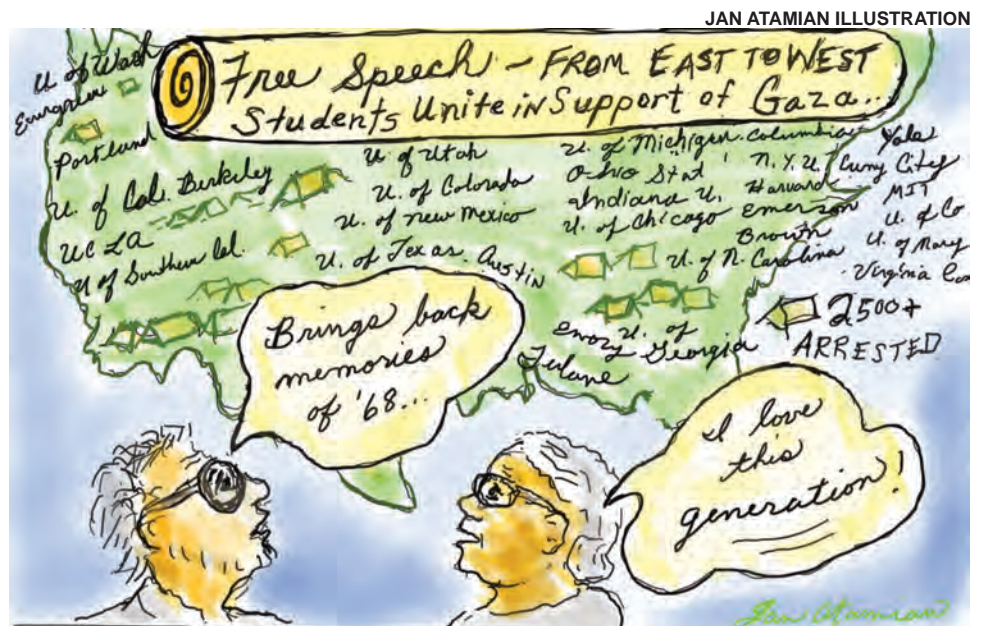 JAN ATAMIAN ILLUSTRATION
Free Speech - FROM EAST TO WEST
Students Unite in Support of Gaza...
U of Wash
Evergreen
Portland
U. of Cal. Berkeley
UCLA
U of Southern Cal.
U. of Utah
U. of Colorado
U. of New Mexico
U. of Texas. Austin
U. of Michigan
Ohio Stat
Indiana U.
U. of Chicago
Columbia
N.Y.U.
Harvard
Emerson
Brown
U. of N. Carolina
Yale
Cuny City
MIT
U. of Co
U. of Mary
Virginia Com
Emory U. of
Georgia
Tulane
2500+
ARRESTED
Brings back
memories
of '68...
I love
this
generation!
Jan Atamian